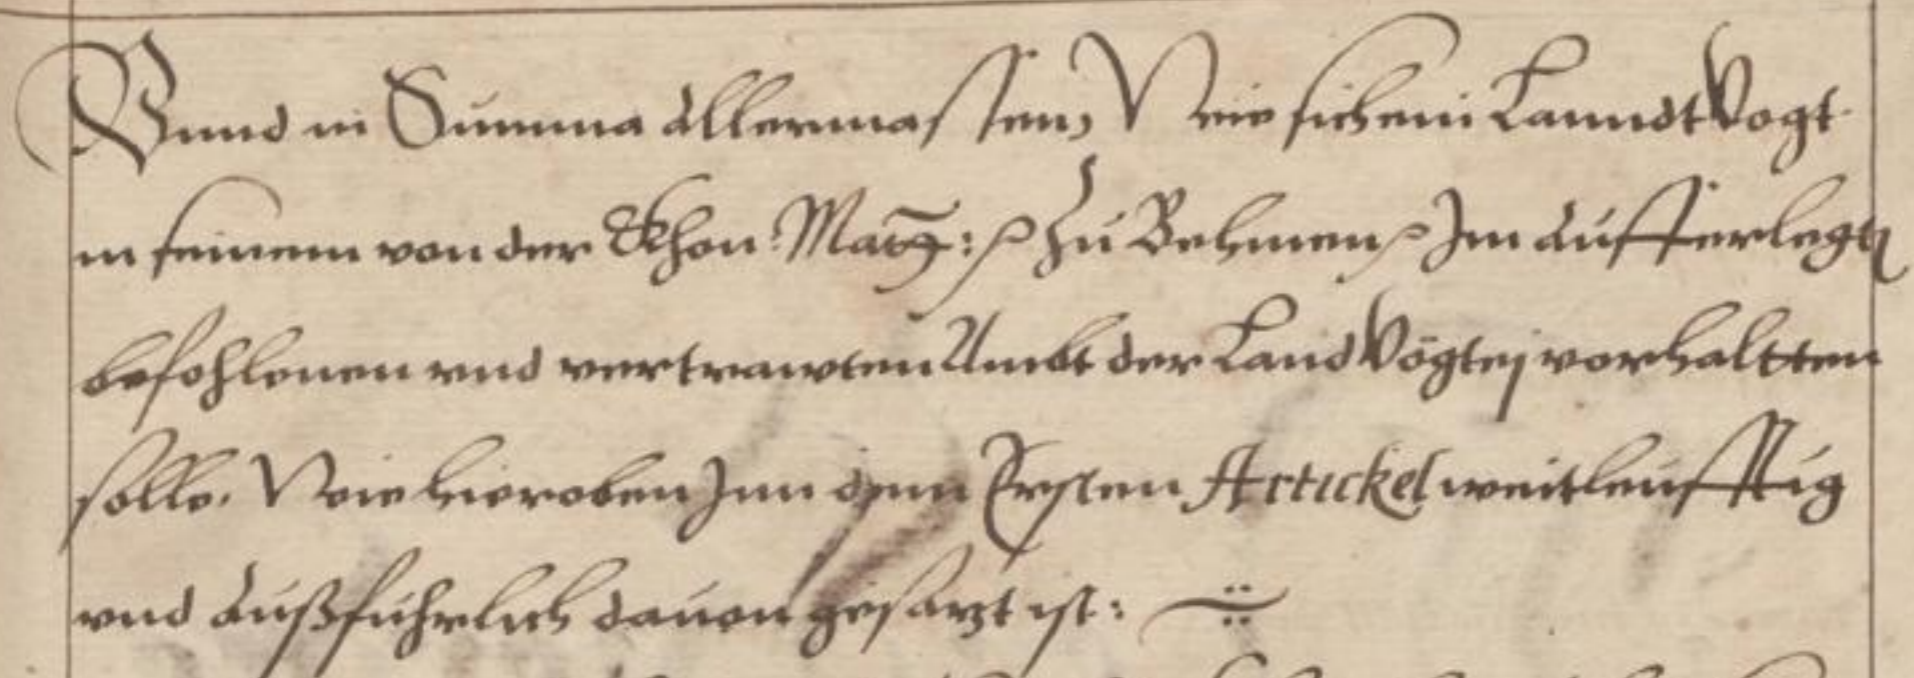 Vnnd in Summa allermassen, Wie sich ein Lanndt Vogt
in seinem von der Khön: Maÿ: zu Behmen Im aufferlegtn
befohlenen vnd vertrawten Ambt der Land Vögtej vorhaltten
solle. Wie hieroben Inn dem Ersten Artickel weitleufftig
vnd außführlich dauon gesatzt ist: